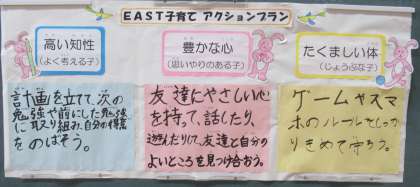 EAST子育て アクションプラン
高い知性
(よく考える子)
計画を立てて、次の
勉強や前にした勉強
に取り組み、自分の得意
をのばそう。
豊かな心
(思いやりのある子)
友達にやさしい心
を持って、話したり、
遊んだりして、友達と自分の
よいところを見つけ合おう。
たくましい体
(じょうぶな子)
ゲームやスマ
ホのルールをしっか
りきめて守ろう。